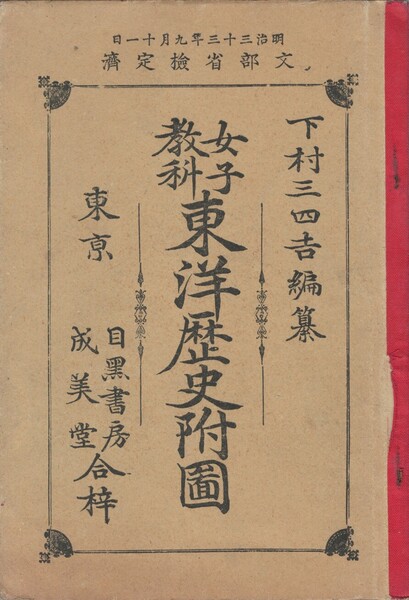 明治三十三年九月十一日
文部省檢定濟
下村三四吉編纂
女子
教科
東洋歷史附圖
東京
目黑書房
成美堂
合梓